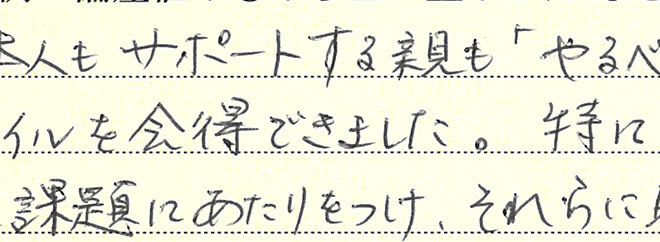 本人もサポートする親も「やるべ
イルを会得できました。特に
課題にあたりをつけ、それらに